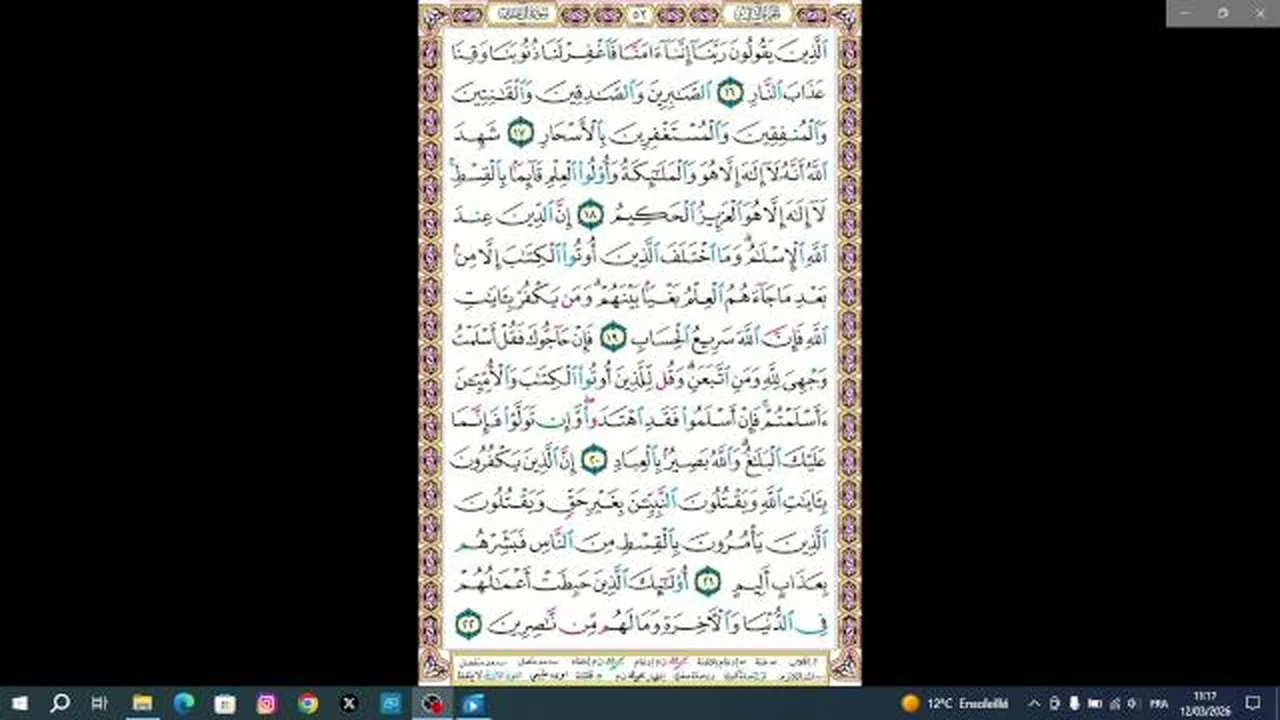 سورة آل عمران ٥٢ الجزء الثالث
ٱلَّذِينَ يَقُولُونَ رَبَّنَآ إِنَّنَآ ءَامَنَّا فَٱغْفِرْ لَنَا ذُنُوبَنَا وَقِنَا
عَذَابَ ٱلنَّارِ ١٦ ٱلصَّٰبِرِينَ وَٱلصَّٰدِقِينَ وَٱلْقَٰنِتِينَ
وَٱلْمُنفِقِينَ وَٱلْمُسْتَغْفِرِينَ بِٱلْأَسْحَارِ ١٧ شَهِدَ
ٱللَّهُ أَنَّهُۥ لَآ إِلَٰهَ إِلَّا هُوَ وَٱلْمَلَٰٓئِكَةُ وَأُو۟لُوا۟ ٱلْعِلْمِ قَآئِمًۢا بِٱلْقِسْطِۚ
لَآ إِلَٰهَ إِلَّا هُوَ ٱلْعَزِيزُ ٱلْحَكِيمُ ١٨ إِنَّ ٱلدِّينَ عِندَ
ٱللَّهِ ٱلْإِسْلَٰمُۗ وَمَا ٱخْتَلَفَ ٱلَّذِينَ أُوتُوا۟ ٱلْكِتَٰبَ إِلَّا مِنۢ
بَعْدِ مَا جَآءَهُمُ ٱلْعِلْمُ بَغْيًۢا بَيْنَهُمْۗ وَمَن يَكْفُرْ بِـَٔايَٰتِ
ٱللَّهِ فَإِنَّ ٱللَّهَ سَرِيعُ ٱلْحِسَابِ ١٩ فَإِنْ حَآجُّوكَ فَقُلْ أَسْلَمْتُ
وَجْهِىَ لِلَّهِ وَمَنِ ٱتَّبَعَنِۗ وَقُل لِّلَّذِينَ أُوتُوا۟ ٱلْكِتَٰبَ وَٱلْأُمِّيِّۦنَ
ءَأَسْلَمْتُمْۚ فَإِنْ أَسْلَمُوا۟ فَقَدِ ٱهْتَدَوا۟ۖ وَّإِن تَوَلَّوْا۟ فَإِنَّمَا
عَلَيْكَ ٱلْبَلَٰغُۗ وَٱللَّهُ بَصِيرٌۢ بِٱلْعِبَادِ ٢٠ إِنَّ ٱلَّذِينَ يَكْفُرُونَ
بِـَٔايَٰتِ ٱللَّهِ وَيَقْتُلُونَ ٱلنَّبِيِّۦنَ بِغَيْرِ حَقٍّ وَيَقْتُلُونَ
ٱلَّذِينَ يَأْمُرُونَ بِٱلْقِسْطِ مِنَ ٱلنَّاسِ فَبَشِّرْهُم
بِعَذَابٍ أَلِيمٍ ٢١ أُو۟لَٰٓئِكَ ٱلَّذِينَ حَبِطَتْ أَعْمَٰلُهُمْ
فِى ٱلدُّنْيَا وَٱلْءَاخِرَةِ وَمَا لَهُم مِّن نَّٰصِرِينَ ٢٢
12°C Ensoleillé
FRA
11:17
12/03/2026